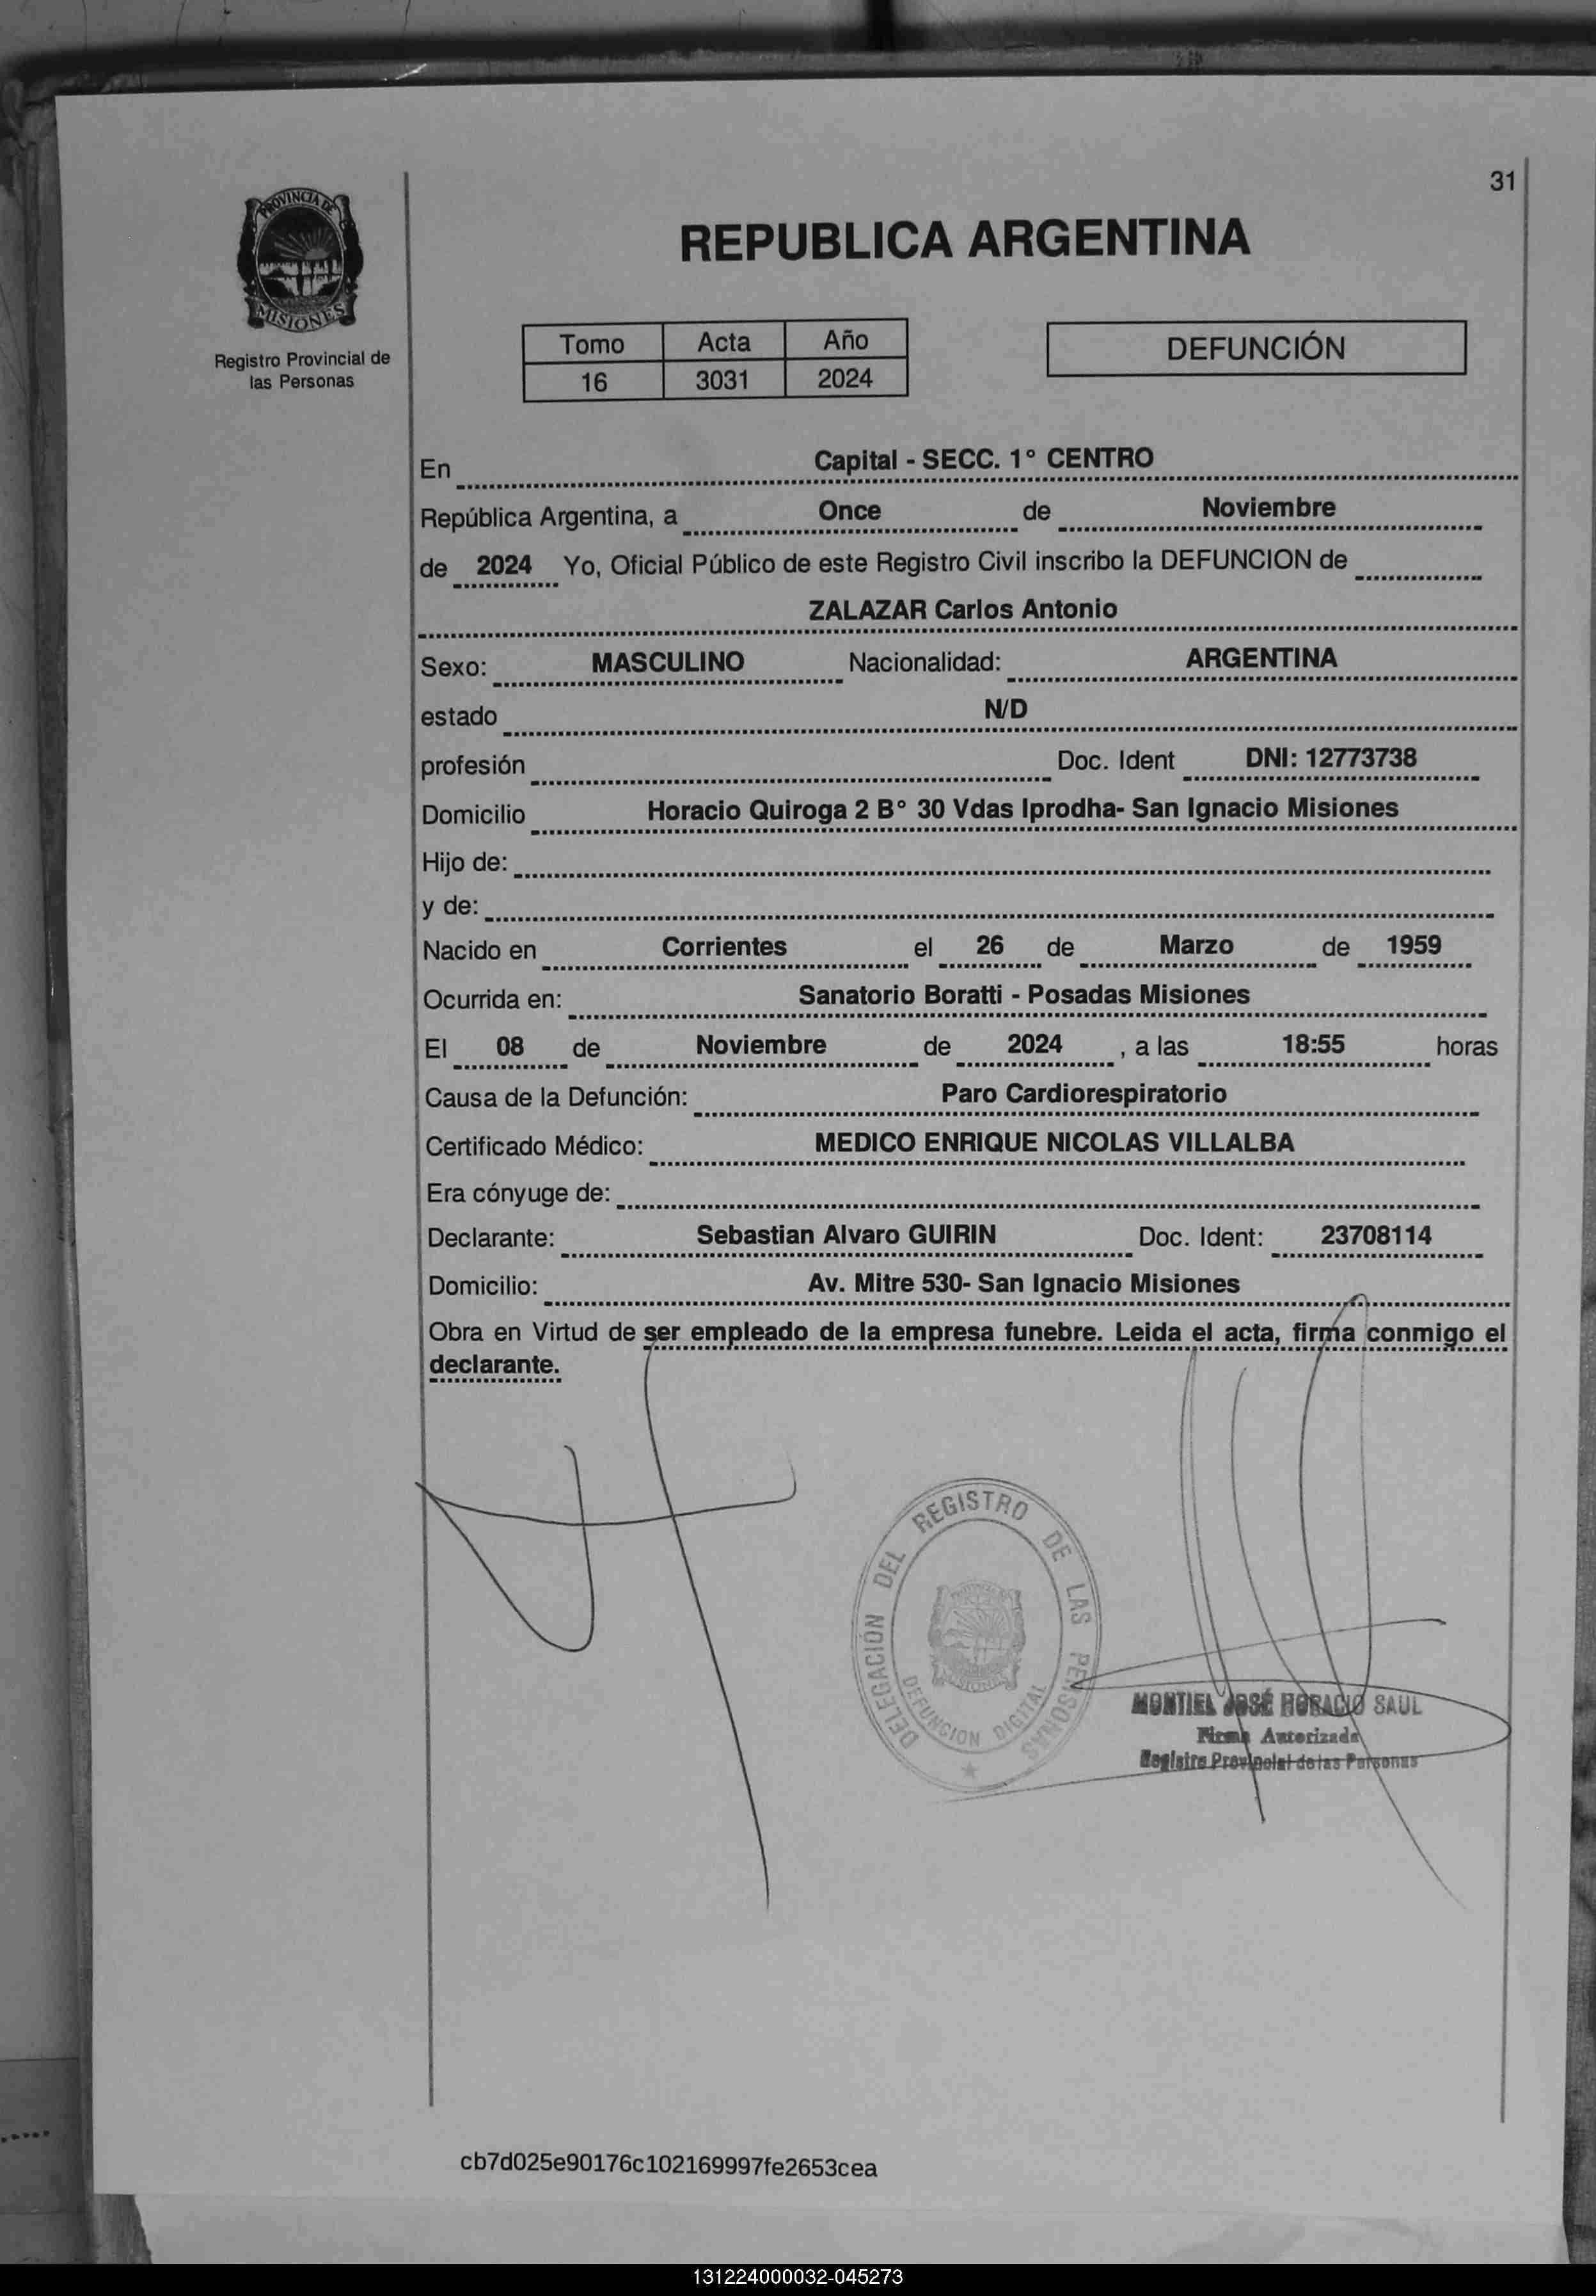 31
PROVINCIA DE
MISIONES
Registro Provincial de
las Personas
REPUBLICA ARGENTINA
Tomo Acta Año
16 3031 2024
DEFUNCIÓN
En Capital - SECC. 1° CENTRO
República Argentina, a Once de Noviembre
de 2024 Yo, Oficial Público de este Registro Civil inscribo la DEFUNCION de
ZALAZAR Carlos Antonio
Sexo: MASCULINO Nacionalidad: ARGENTINA
estado N/D
profesión Doc. Ident DNI: 12773738
Domicilio Horacio Quiroga 2 B° 30 Vdas Iprodha- San Ignacio Misiones
Hijo de:
y de:
Nacido en Corrientes el 26 de Marzo de 1959
Ocurrida en: Sanatorio Boratti - Posadas Misiones
El 08 de Noviembre de 2024 , a las 18:55 horas
Causa de la Defunción: Paro Cardiorespiratorio
Certificado Médico: MEDICO ENRIQUE NICOLAS VILLALBA
Era cónyuge de:
Declarante: Sebastian Alvaro GUIRIN Doc. Ident: 23708114
Domicilio: Av. Mitre 530- San Ignacio Misiones
Obra en Virtud de ser empleado de la empresa funebre. Leida el acta, firma conmigo el
declarante.
DELEGACIÓN DEL REGISTRO DE LAS PERSONAS
DEFUNCION DIGITAL
MONTIEL JOSÉ HORACIO SAUL
Firma Autorizada
Registro Provincial de las Personas
cb7d025e90176c102169997fe2653cea
131224000032-045273